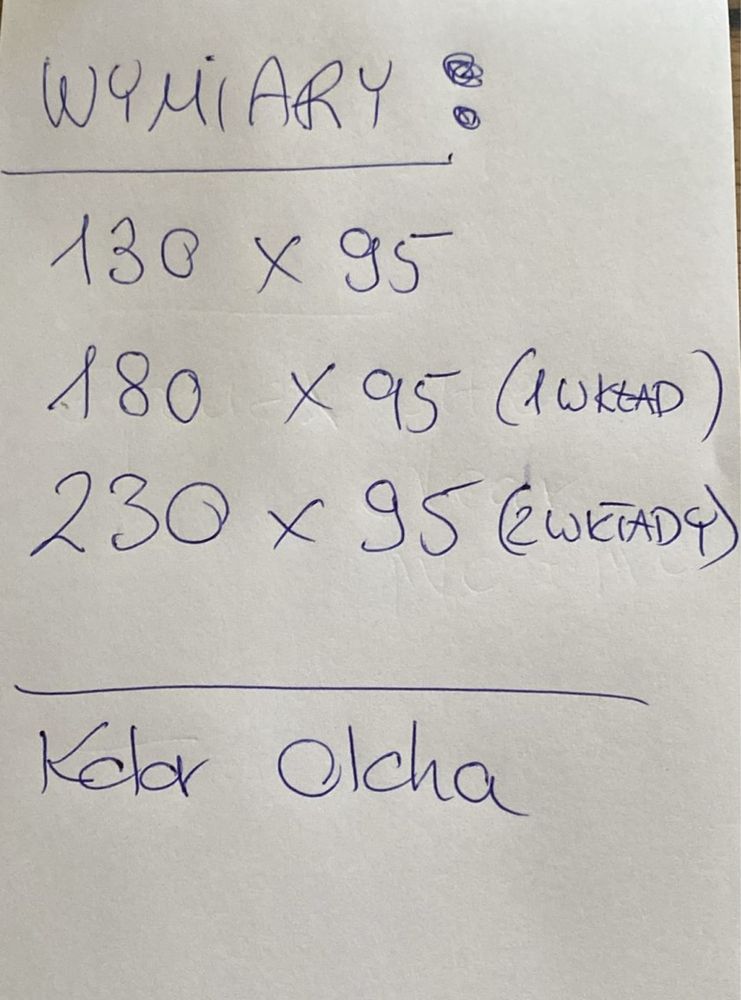 WYMIARY :
130 x 95
180 x 95 (1 WKŁAD)
230 x 95 (2 WKŁADY)
Kolor Olcha